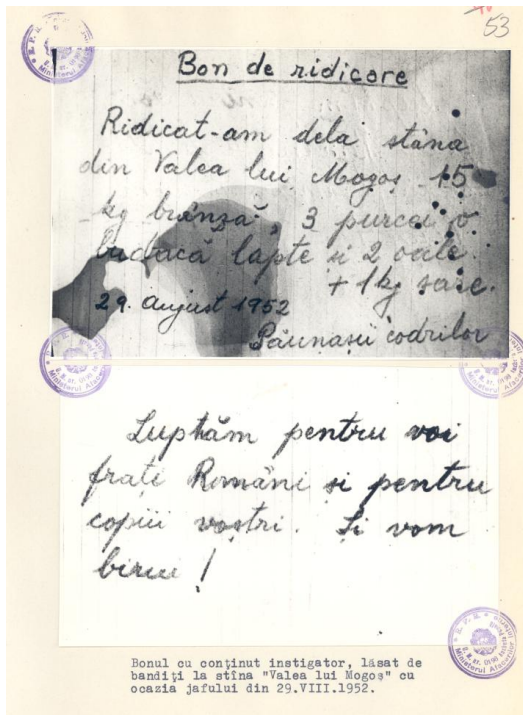 53
Bon de ridicare
Ridicat-am dela stâna
din Valea lui Mogoș 15
kg brânză, 3 purcei, o
budacă lapte și 2 ocale
+ 1 kg sare.
29. august 1952
Păunașii codrilor
Luptăm pentru voi
frați Români și pentru
copiii voștri. Și vom
birui!
Bonul cu conținut instigator, lăsat de
bandiți la stîna "Valea lui Mogoș" cu
ocazia jafului din 29.VIII.1952.